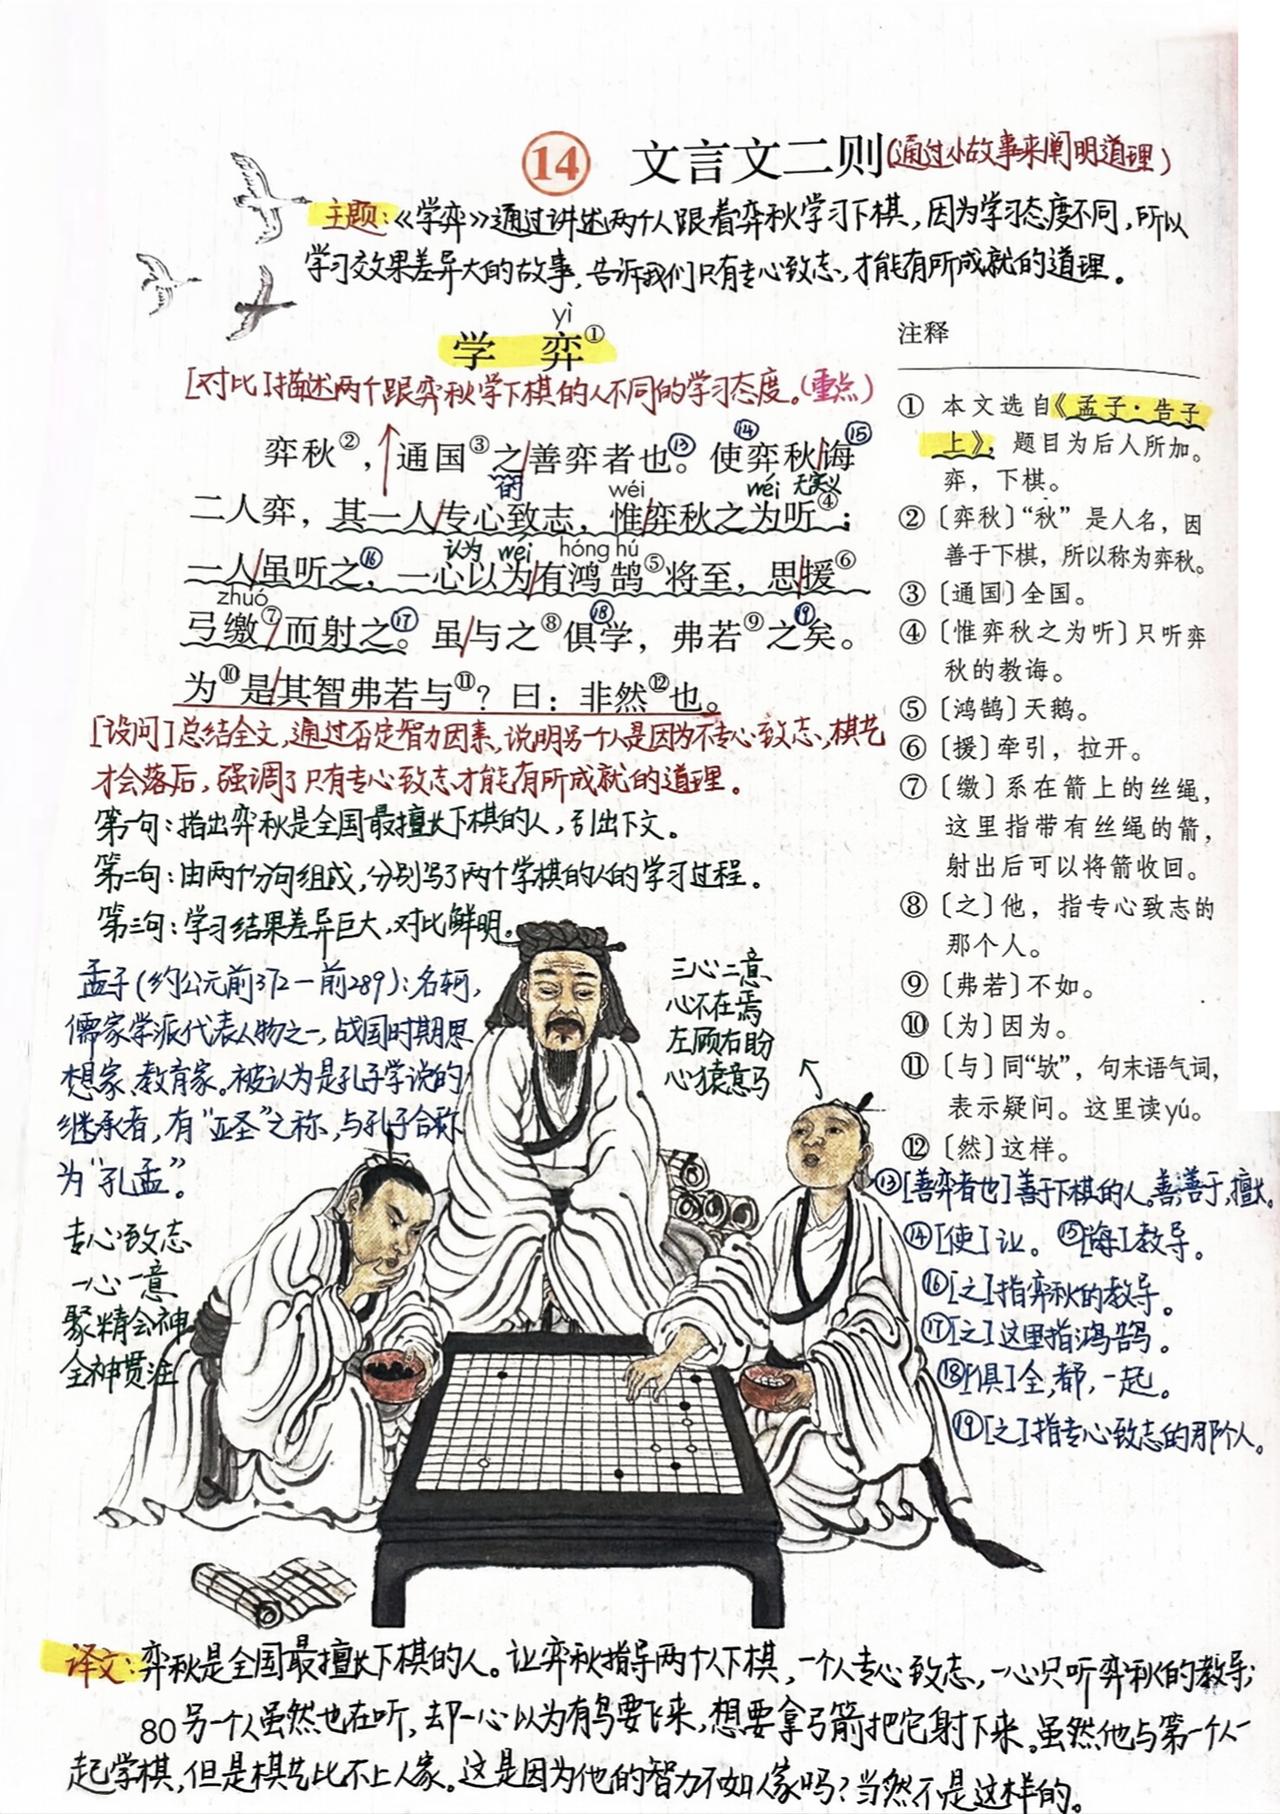 14 文言文二则(通过小故事来阐明道理)
主题:《学弈》通过讲述两个人跟着弈秋学习下棋,因为学习态度不同,所以
学习效果差异大的故事,告诉我们只有专心致志,才能有所成就的道理。
yì
学 弈①
[对比]描述两个跟弈秋学下棋的人不同的学习态度。(重点)
弈秋②,通国③之善弈者也⑬。使⑭弈秋诲⑮
的 wéi wéi 无实义
二人弈,其一人专心致志,惟弈秋之为听④;
认为 wéi hóng hú
一人虽听之⑯,一心以为有鸿鹄⑤将至,思援⑥
zhuó
弓缴⑦而射之⑰。虽与之⑧俱⑱学,弗若⑨之⑲矣。
为⑩是其智弗若与⑪?曰:非然⑫也。
[设问]总结全文,通过否定智力因素,说明另一个人是因为不专心致志,棋艺
才会落后,强调了只有专心致志才能有所成就的道理。
第一句:指出弈秋是全国最擅长下棋的人,引出下文。
第二句:由两个分句组成,分别写了两个学棋的人的学习过程。
第三句:学习结果差异巨大,对比鲜明。
孟子(约公元前372—前289):名轲,
儒家学派代表人物之一,战国时期思
想家、教育家。被认为是孔子学说的
继承者,有“亚圣”之称,与孔子合称
为“孔孟”。
专心致志
一心一意
聚精会神
全神贯注
三心二意
心不在焉
左顾右盼
心猿意马
注释
① 本文选自《孟子·告子
上》,题目为后人所加。
弈,下棋。
②〔弈秋〕“秋”是人名,因
善于下棋,所以称为弈秋。
③〔通国〕全国。
④〔惟弈秋之为听〕只听弈
秋的教诲。
⑤〔鸿鹄〕天鹅。
⑥〔援〕牵引,拉开。
⑦〔缴〕系在箭上的丝绳,
这里指带有丝绳的箭,
射出后可以将箭收回。
⑧〔之〕他,指专心致志的
那个人。
⑨〔弗若〕不如。
⑩〔为〕因为。
⑪〔与〕同“欤”,句末语气词,
表示疑问。这里读yú。
⑫〔然〕这样。
⑬[善弈者也]善于下棋的人。善:善于,擅长。
⑭[使]让。 ⑮[诲]教导。
⑯[之]指弈秋的教导。
⑰[之]这里指鸿鹄。
⑱[俱]全,都,一起。
⑲[之]指专心致志的那个人。
译文:弈秋是全国最擅长下棋的人。让弈秋指导两个人下棋,一个人专心致志,一心只听弈秋的教导;
80 另一个人虽然也在听,却一心以为有鸟要飞来,想要拿弓箭把它射下来。虽然他与第一个人一
起学棋,但是棋艺比不上人家。这是因为他的智力不如人家吗?当然不是这样的。